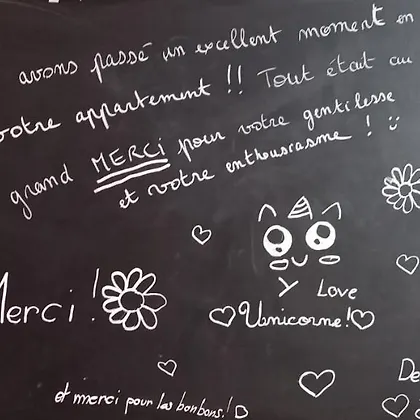 avons passé un excellent moment en
votre appartement !! Tout était au
grand MERCi pour votre gentilesse
et votre enthousiasme !
Merci !
y Love
Unicorne!
et merci pour les bonbons.!
De